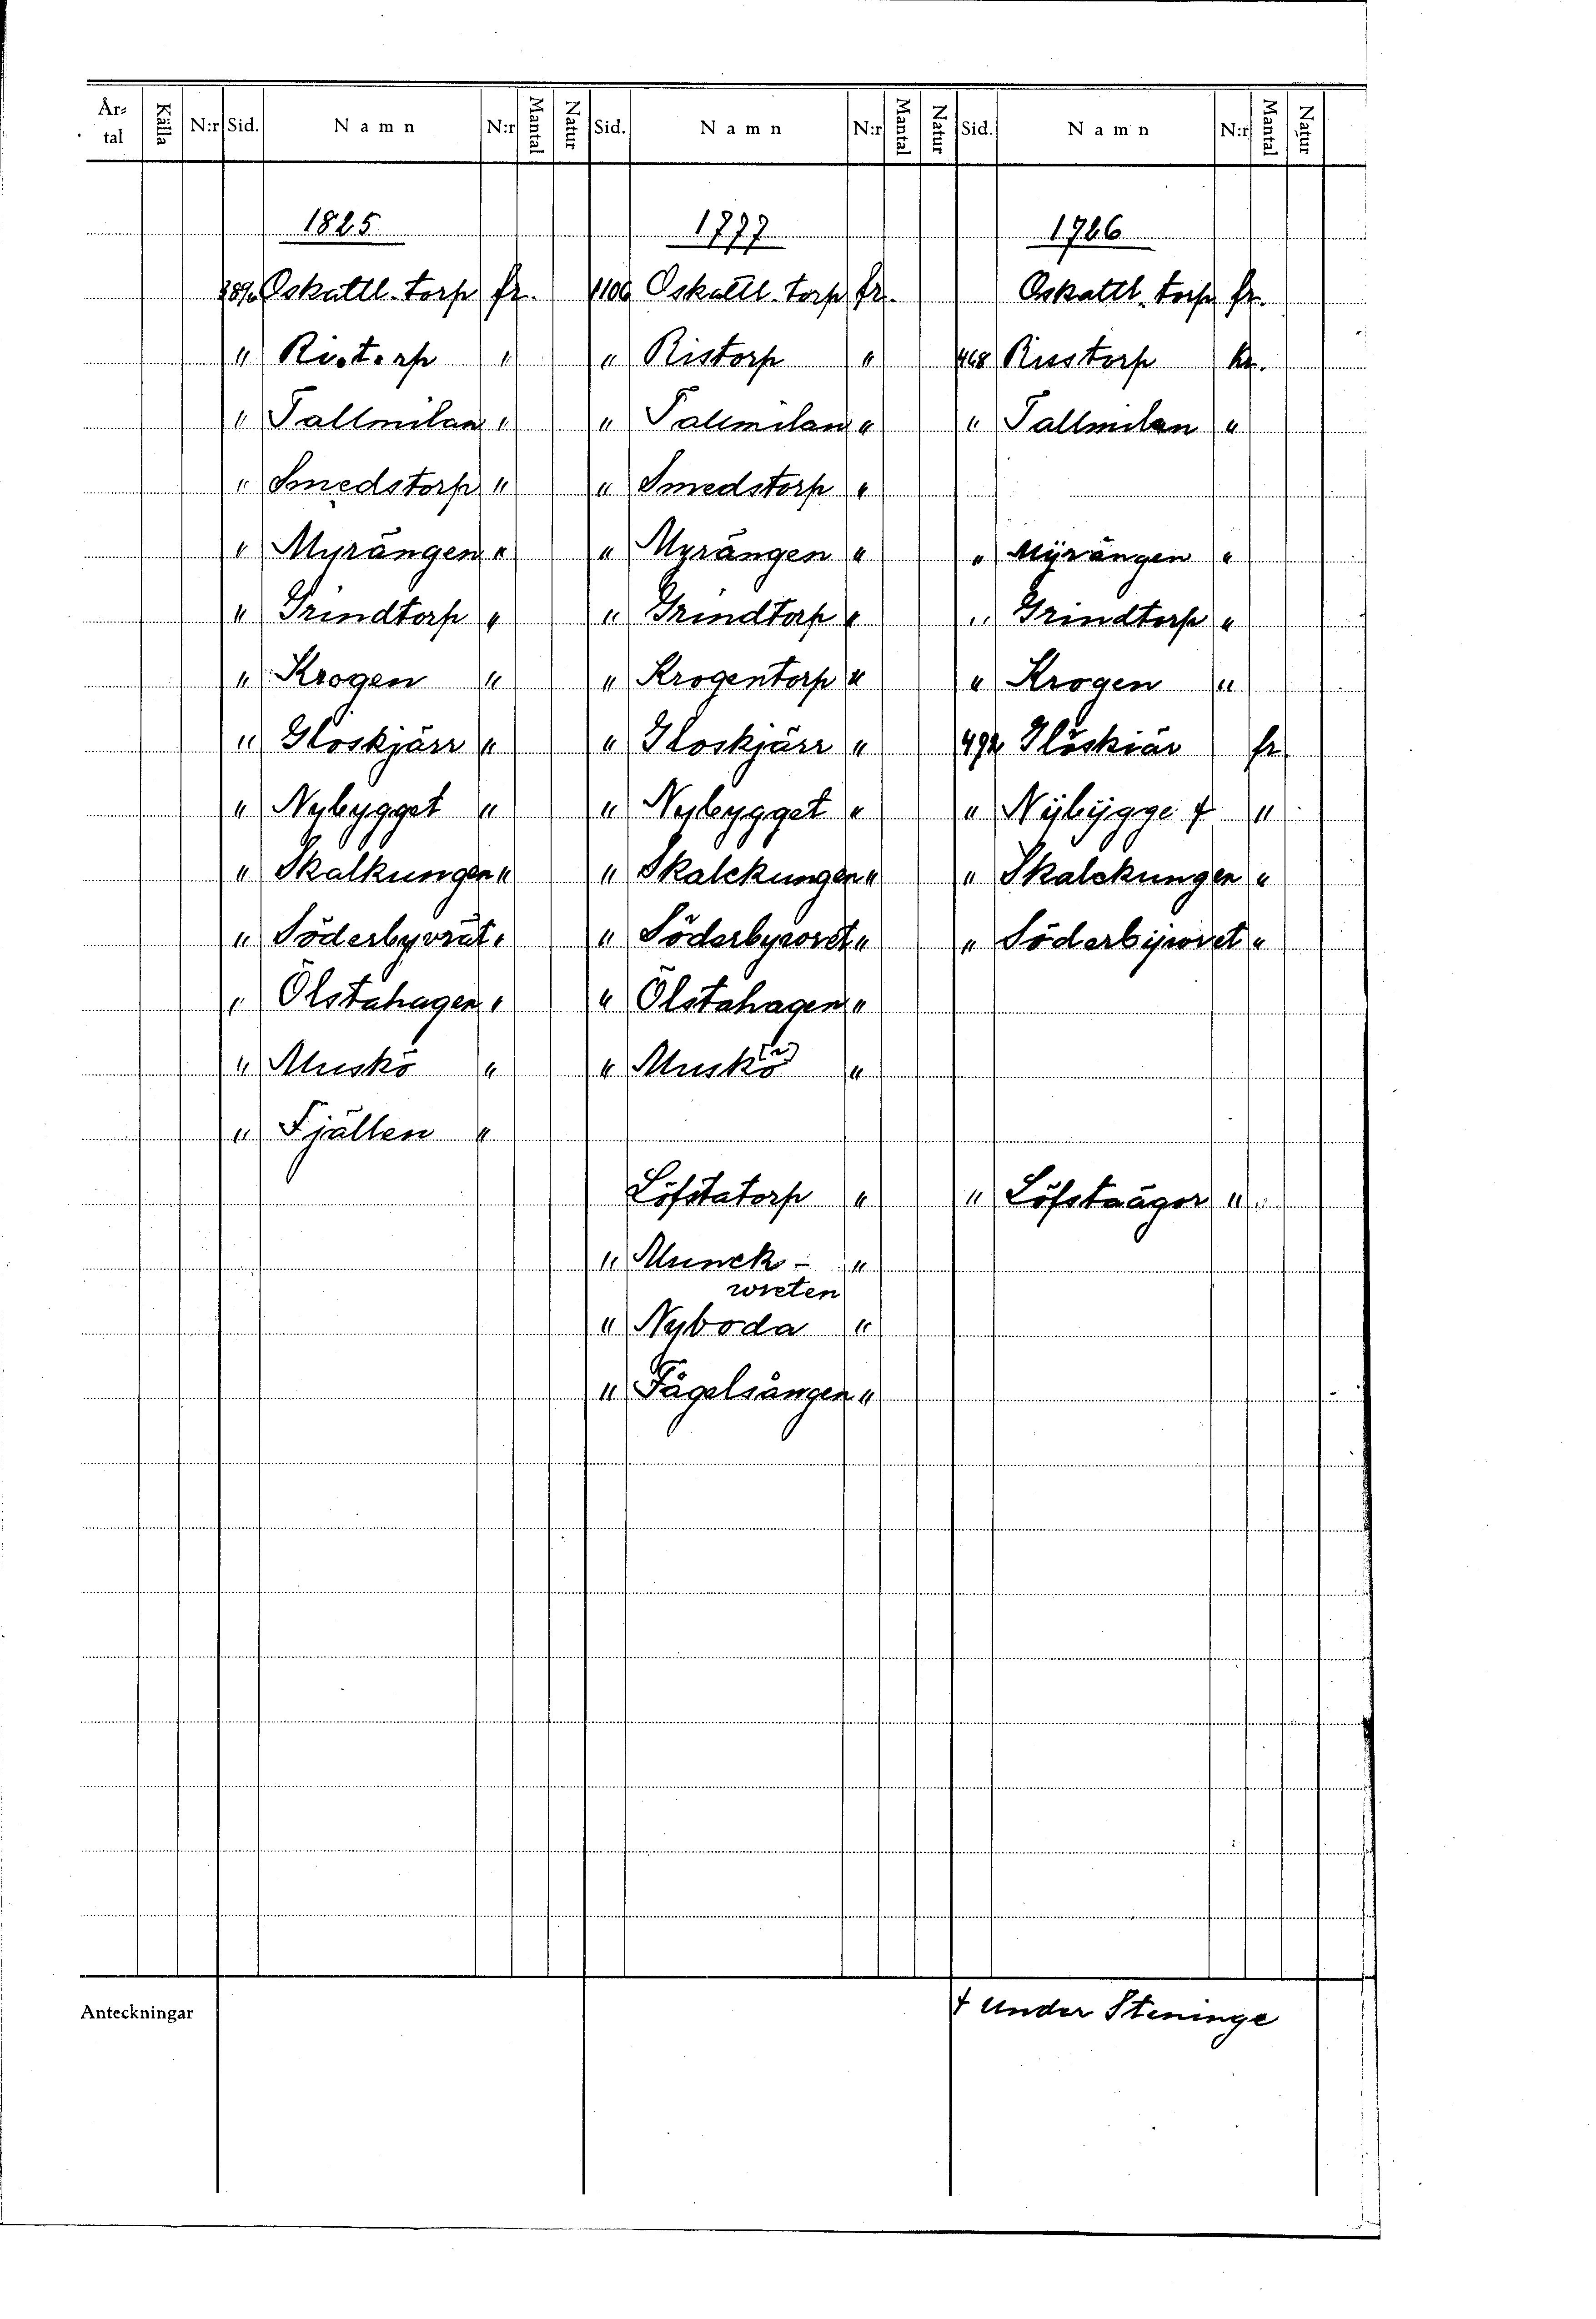 År-tal Källa N:r Sid. Namn N:r Mantal Natur Sid. Namn N:r Mantal Natur Sid. Namn N:r Mantal Natur
1825 1777 1726
Oskattl. torp fr. 1100 Oskattl. torp fr. Oskattl. torp fr.
" Ristorp " " Ristorp " 468 Risstorp kr.
" Tallmilan " " Tallmilan " " Tallmilan "
" Smedstorp " " Smedstorp "
" Myrängen " " Myrängen " " Mÿrängen "
" Grindtorp " " Grindtorp " " Grindtorp "
" Krogen " " Krogentorp " " Krogen "
" Gloskjärr " " Gloskjärr " 492 Glöskiär fr
" Nybygget " " Nybygget " " Nÿbÿgge † "
" Skalkungen " " Skalckungen " " Skalckungen "
" Söderbyvret " " Söderbywret " " Söderbÿwret "
" Ölstahagen " " Ölstahagen "
" Muskö " " Muskö "
" Fjällen "
Löfstatorp " " Löfstaäger "
" Munck- "
wreten
" Nyboda "
" Fågelsången "
Anteckningar † under Steninge